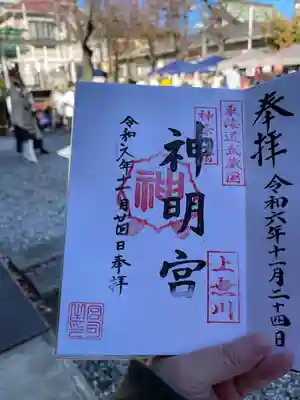 奉拝
令和六年十一月二十四日
東海道武蔵国
神奈川宿
神明宮
上無川
神
令和六年十一月廿四日奉拝